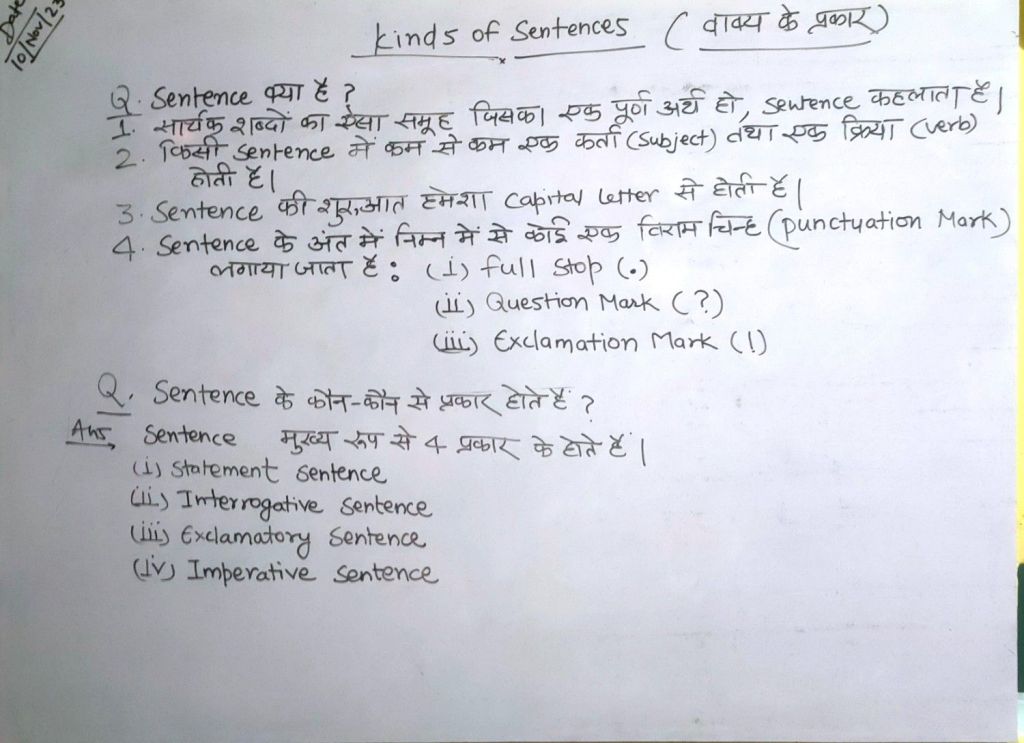 Date
10/Nov/23
Kinds of Sentences (वाक्य के प्रकार)
Q. Sentence क्या है ?
1. सार्थक शब्दों का ऐसा समूह जिसका एक पूर्ण अर्थ हो, Sentence कहलाता है।
2. किसी Sentence में कम से कम एक कर्ता (Subject) तथा एक क्रिया (verb)
होती है।
3. Sentence की शुरुआत हमेशा Capital letter से होती है।
4. Sentence के अंत में निम्न में से कोई एक विराम चिन्ह (punctuation Mark)
लगाया जाता है : (i) full stop (.)
(ii) Question Mark (?)
(iii) Exclamation Mark (!)
Q. Sentence के कौन-कौन से प्रकार होते हैं ?
Ans, Sentence मुख्य रूप से 4 प्रकार के होते हैं।
(i) Statement Sentence
(ii) Interrogative Sentence
(iii) Exclamatory Sentence
(iv) Imperative Sentence